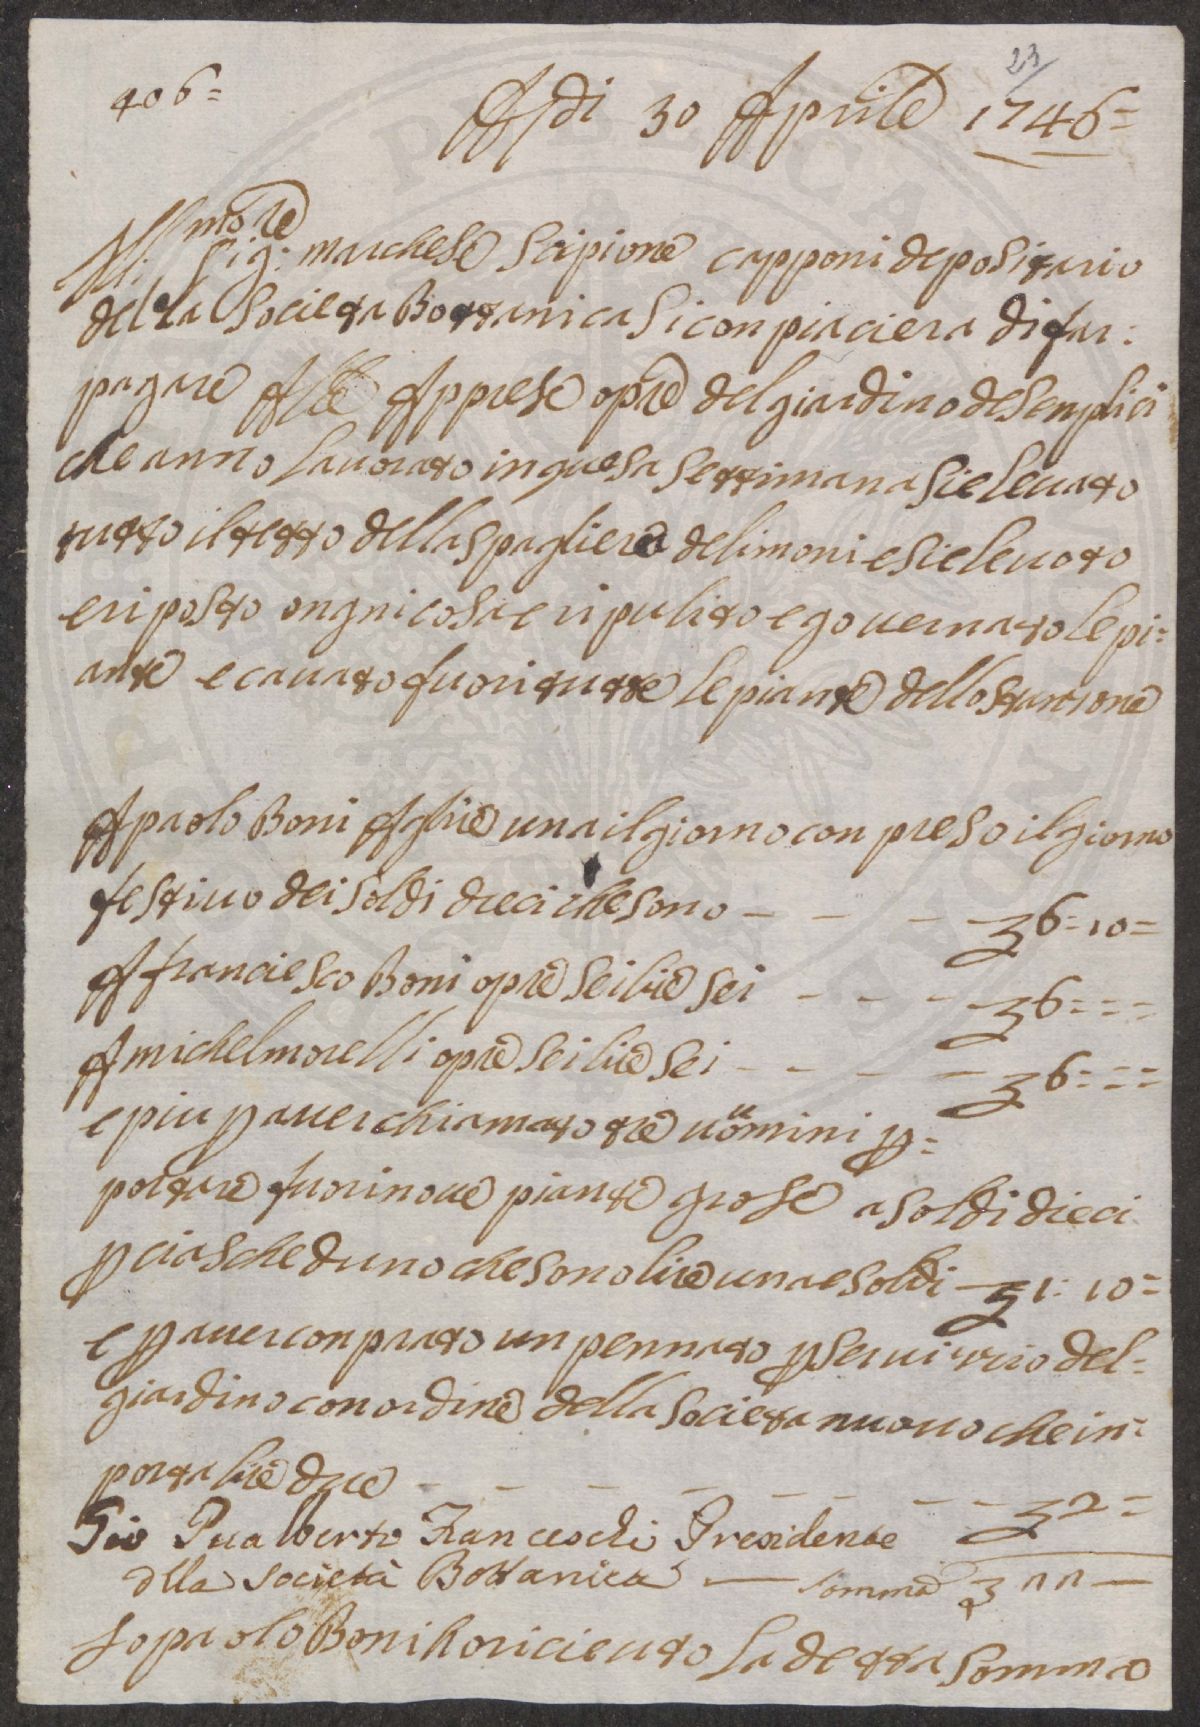 23
406= Adi 30 Aprile 1746=
Illmo re
Sig: marchese Scipione capponi depositario
della Societta Bottanica Si conpiaciera di far:
pagare Alle Apprese opre del giardino de Senplici
che anno lauorato in quesa Settimana Sie leuato
tutto il tetto della Spagliera de limoni e Sie leuoto
e riposto ongni cosa e ripulito e gouernato le pi=
ante e cauato fuori tutte le piante dello Stantione
A paolo Boni A lire una il giorno con preso il giorno
festiuo dei Soldi dieci che sono - - - - 36=10=
A franciesco Boni opre Sei lire Sei - - - 36===
A michel morelli opre Sei lire Sei - - - - 36===
e piu p auer chiamato tre uomini p=
portare fuori noue piante grose a Soldi dieci
p ciascheduno che sono lire una e Soldi - 31: 10=
e p auer conprato un pennato p Seruitio del=
giardino con ordine della Societta nuouo che in=
porta lire due - - - - - - - - 32=
Gio Gualberto Franceschi Presidente
dlla Società Bottanica — Somma 3 22 —
Io paolo Boni ho riceuto La detta Somma